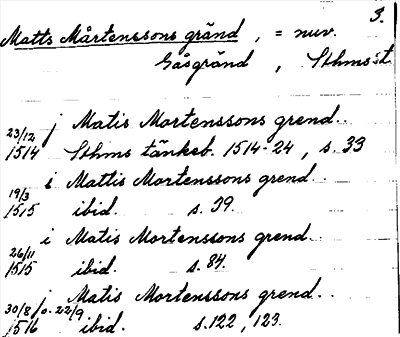 3.
Matts Mårtenssons gränd, = nuv.
Gåsgränd, Sthms st.
j Matis Mortenssons grend..
23/12 1514 Sthms tänkeb. 1514-24, s. 33
i Mattis Mortenssons grend
19/3 1515 ibid. s. 39.
i Matis Mortenssons grend.
26/11 1515 ibid. s. 84.
j Matis Mortenssons grend..
30/8 o. 22/9 1516 ibid. s. 122, 123.